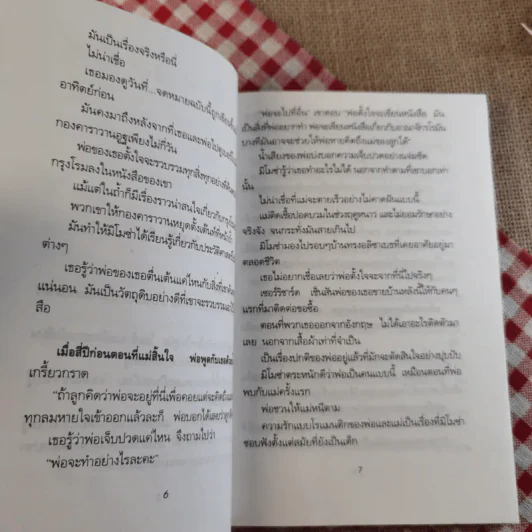 มันเป็นเรื่องจริงหรือนี่
ไม่น่าเชื่อ
เธอมองดูวันที่...จดหมายฉบับนี้ถูกเขียนขึ้น
อาทิตย์ก่อน
มันคงมาถึงหลังจากที่เธอและพ่อไปดู
กองคาราวานอูฐเพียงไม่กี่วัน
พ่อของเธอตั้งใจจะรวบรวมทุกสิ่งทุกอย่าง
กรุงโรมลงในหนังสือของเขา
แม้แต่ในถ้ำก็มีเรื่องราวน่าสนใจเกี่ยวกับ
พวกเขาให้กองคาราวานหยุดตั้งเต้นท์ที่หน้าถ้ำ
มันทำให้มิโมซ่าได้เรียนรู้เกี่ยวกับประวัติศาสตร์
ต่างๆ
เธอรู้ว่าพ่อของเธอตื่นเต้นแค่ไหนกับสิ่งที่
แน่นอน มันเป็นวัตถุดิบอย่างดีที่เขาจะรวบรวม
สือ
เมื่อสี่ปีก่อนตอนที่แม่สิ้นใจ พ่อพูดกับเธอด้วย
เกรี้ยวกราด
“ถ้าลูกคิดว่าพ่อจะอยู่ที่นี่เพื่อคอยแต่จะคิดถึง
ทุกลมหายใจเข้าออกแล้วละก็ พ่อบอกได้เลยว่า
เธอรู้ว่าพ่อเจ็บปวดแค่ไหน จึงถามไปว่า
“พ่อจะทำอย่างไรละคะ”
6
“พ่อจะไปที่อื่น” เขาตอบ “พ่อตั้งใจจะเขียนหนังสือ มัน
เป็นสิ่งที่พ่ออยากทำ พ่อจะเขียนหนังสือเกี่ยวกับอาณาจักรโรมัน
บางทีมันอาจจะช่วยให้พ่อหายคิดถึงแม่ของลูกได้”
น้ำเสียงของพ่อบ่งบอกความเจ็บปวดอย่างแจ่มชัด
มิโมซ่ารู้ว่าเธอทำอะไรไม่ได้ นอกจากทำตามที่เขาบอกเท่า
นั้น
ไม่น่าเชื่อที่แม่จะตายเร็วอย่างไม่คาดฝันแบบนี้
แม่ติดเชื้อปอดบวมในช่วงฤดูหนาว และไม่ยอมรักษาอย่าง
จริงจัง จนกระทั่งมันสายเกินไป
มิโมซ่ามองไปรอบๆบ้านทรงอลิซาเบธที่เคยอาศัยอยู่มา
ตลอดชีวิต
เธอไม่อยากเชื่อเลยว่าพ่อตั้งใจจะจากที่นี่ไปจริงๆ
เซอร์ริชาร์ด เชินสันพ่อของเธอขายบ้านหลังนี้ให้กับคนๆ
แรกที่มาติดต่อขอซื้อ
ตอนที่พวกเธอออกจากอังกฤษ ไม่ได้เอาอะไรติดตัวมา
เลย นอกจากเสื้อผ้าเท่าที่จำเป็น
เป็นเรื่องปกติของพ่ออยู่แล้วที่มักจะตัดสินใจอย่างปุบปับ
มิโมซ่าตระหนักดีว่าพ่อเป็นคนแบบนี้ เหมือนตอนที่พ่อ
พบกับแม่ครั้งแรก
พ่อชวนให้แม่หนีตาม
ความรักแบบโรแมนติกของพ่อและแม่เป็นเรื่องที่มิโมซ่า
ชอบฟังตั้งแต่สมัยที่ยังเป็นเด็ก
7